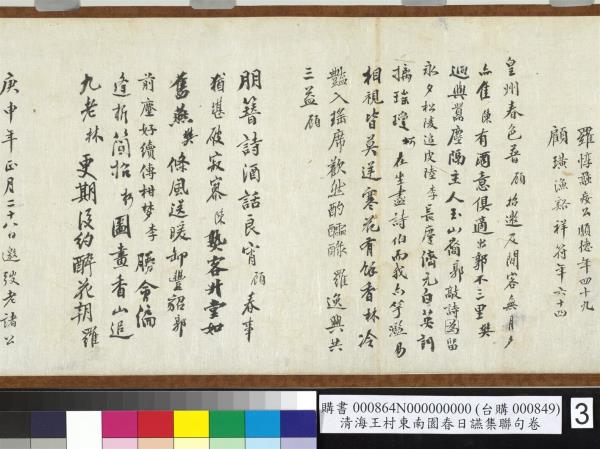 羅惇曧癭公順德年四十九
顧璜漁谿祥符年六十四
皇州春色普顧招邀及閒客無月夕
亦佳陳有酒意俱適出郭不三里樊
迥與囂塵隔主人玉山裔郭敲詩為留
永夕松陵追皮陸李長慶儕元白英詞
摛瑤瓊柯在坐盡詩伯而我亦竽濫易
相視皆莫逆寒花有餘香林冷
豔入瑤席歡然酌醽醁羅逸興共
三益顧
朋簪詩酒話良宵顧春事
猶堪破寂寥陳熱客升堂如
舊燕樊條風送暖却豐貂郭
前塵好續傳柑夢李勝會偏
逢折簡招柯圖畫香山追
九老林更期後約醉花朝羅
庚申年正月二十八日邀弢老諸公
購書 000864N000000000 (台購 000849)
清海王村東南園春日讌集聯句卷
3